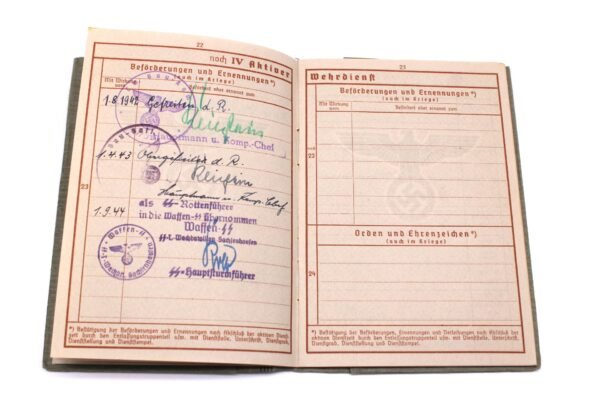 22
noch IV Aktiver
Beförderungen und Ernennungen*)
(auch im Kriege)
Mit Wirkung vom
Befördert oder ernannt zum
1.8.1942 Gefreiten d. R.
Hauptmann u. Komp.-Chef
1.4.43 Obergefreiten d. R.
Hauptmann u. Komp. Chef
23
als SS-Rottenführer
in die Waffen-SS übernommen
1.9.44
Waffen-SS
SS-T. Wachbataillon Sachsenhausen
SS-Hauptsturmführer
Waffen-SS
*) Bestätigung der Beförderungen und Ernennungen nach Abschluß der aktiven Dienst-
zeit durch den Entlassungstruppenteil usw. mit Dienststelle, Unterschrift, Dienstgrad,
Dienststellung und Dienststempel.
23
Wehrdienst
Beförderungen und Ernennungen*)
(auch im Kriege)
Mit Wirkung vom
Befördert oder ernannt zum
23
Orden und Ehrenzeichen*)
(auch im Kriege)
24
*) Bestätigung der Beförderungen, Ernennungen und Verleihungen nach Abschluß der
aktiven Dienstzeit durch den Entlassungstruppenteil usw. mit Dienststelle, Unterschrift, Dienst-
grad, Dienststellung und Dienststempel.